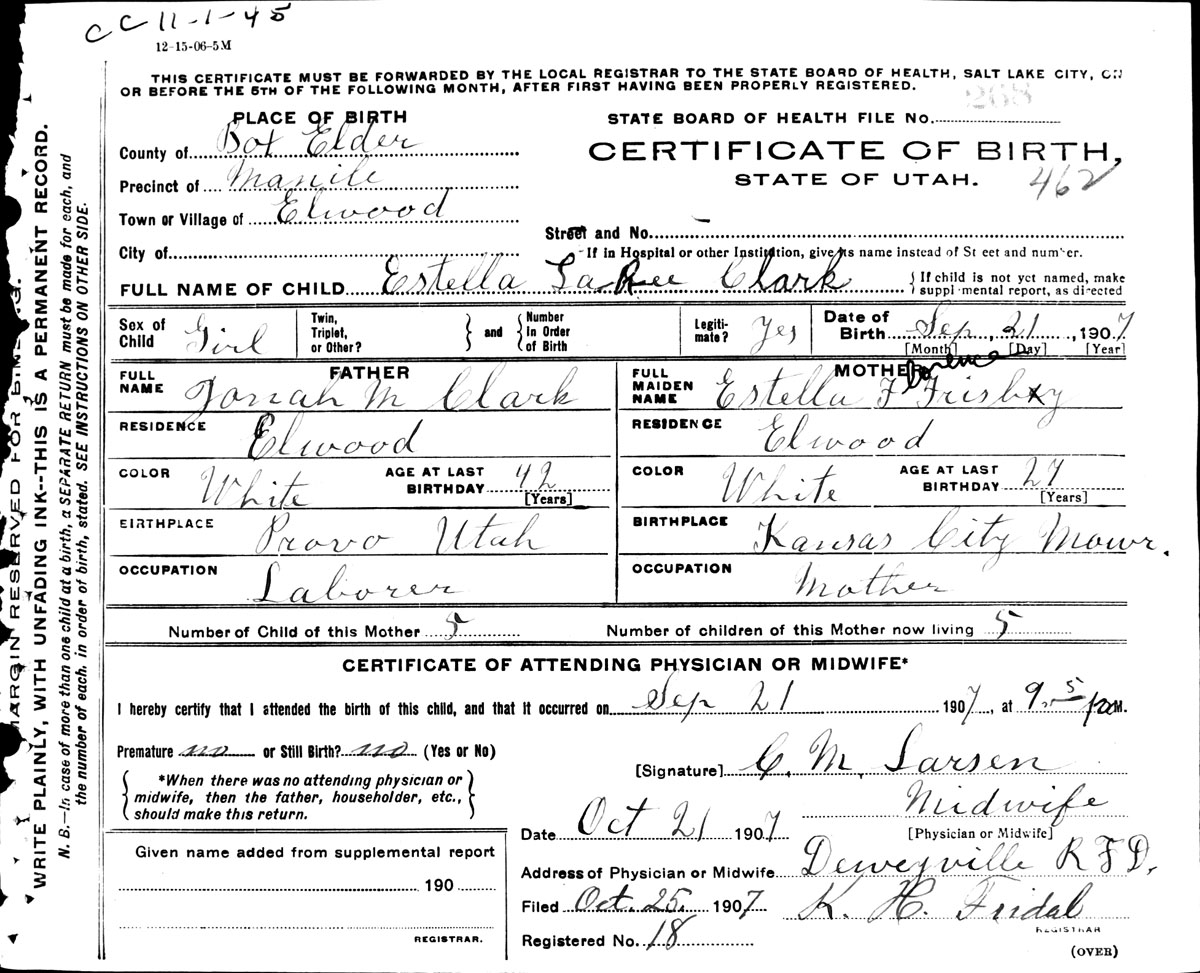 CC 11-1-45
12-15-06-5M
THIS CERTIFICATE MUST BE FORWARDED BY THE LOCAL REGISTRAR TO THE STATE BOARD OF HEALTH, SALT LAKE CITY, ON
OR BEFORE THE 5TH OF THE FOLLOWING MONTH, AFTER FIRST HAVING BEEN PROPERLY REGISTERED.
268
PLACE OF BIRTH
STATE BOARD OF HEALTH FILE No.
County of Box Elder
CERTIFICATE OF BIRTH,
STATE OF UTAH.
462
Precinct of Manile
Town or Village of Elwood
Street and No.
City of
If in Hospital or other Institution, give its name instead of Street and number.
FULL NAME OF CHILD Estella LaRee Clark
If child is not yet named, make
supplemental report, as directed
Sex of Child Girl
Twin, Triplet, or Other?
and
Number In Order of Birth
Legiti-mate? Yes
Date of Birth Sep, 21, 1907
[Month] [Day] [Year]
FATHER
FULL NAME Jonah M Clark
RESIDENCE Elwood
COLOR White
AGE AT LAST BIRTHDAY 42
[Years]
BIRTHPLACE Provo Utah
OCCUPATION Laborer
MOTHER
FULL MAIDEN NAME Estella F Florence Frisby
RESIDENCE Elwood
COLOR White
AGE AT LAST BIRTHDAY 27
[Years]
BIRTHPLACE Kansas City Mowr.
OCCUPATION Mother
Number of Child of this Mother 5
Number of children of this Mother now living 5
CERTIFICATE OF ATTENDING PHYSICIAN OR MIDWIFE*
I hereby certify that I attended the birth of this child, and that it occurred on Sep 21 1907, at 9 5 P M.
Premature no or Still Birth? no (Yes or No)
*When there was no attending physician or
midwife, then the father, householder, etc.,
should make this return.
[Signature] C. M. Larsen
Midwife
[Physician or Midwife]
Date Oct 21 1907
Address of Physician or Midwife Deweyville R F D.
Given name added from supplemental report
190
REGISTRAR.
Filed Oct. 25, 1907
K. H. Fridal
REGISTRAR
Registered No. 18
(OVER)
MARGIN RESERVED FOR BINDING.
WRITE PLAINLY, WITH UNFADING INK--THIS IS A PERMANENT RECORD.
N. B.—In case of more than one child at a birth, a SEPARATE RETURN must be made for each, and
the number of each, in order of birth, stated. SEE INSTRUCTIONS ON OTHER SIDE.